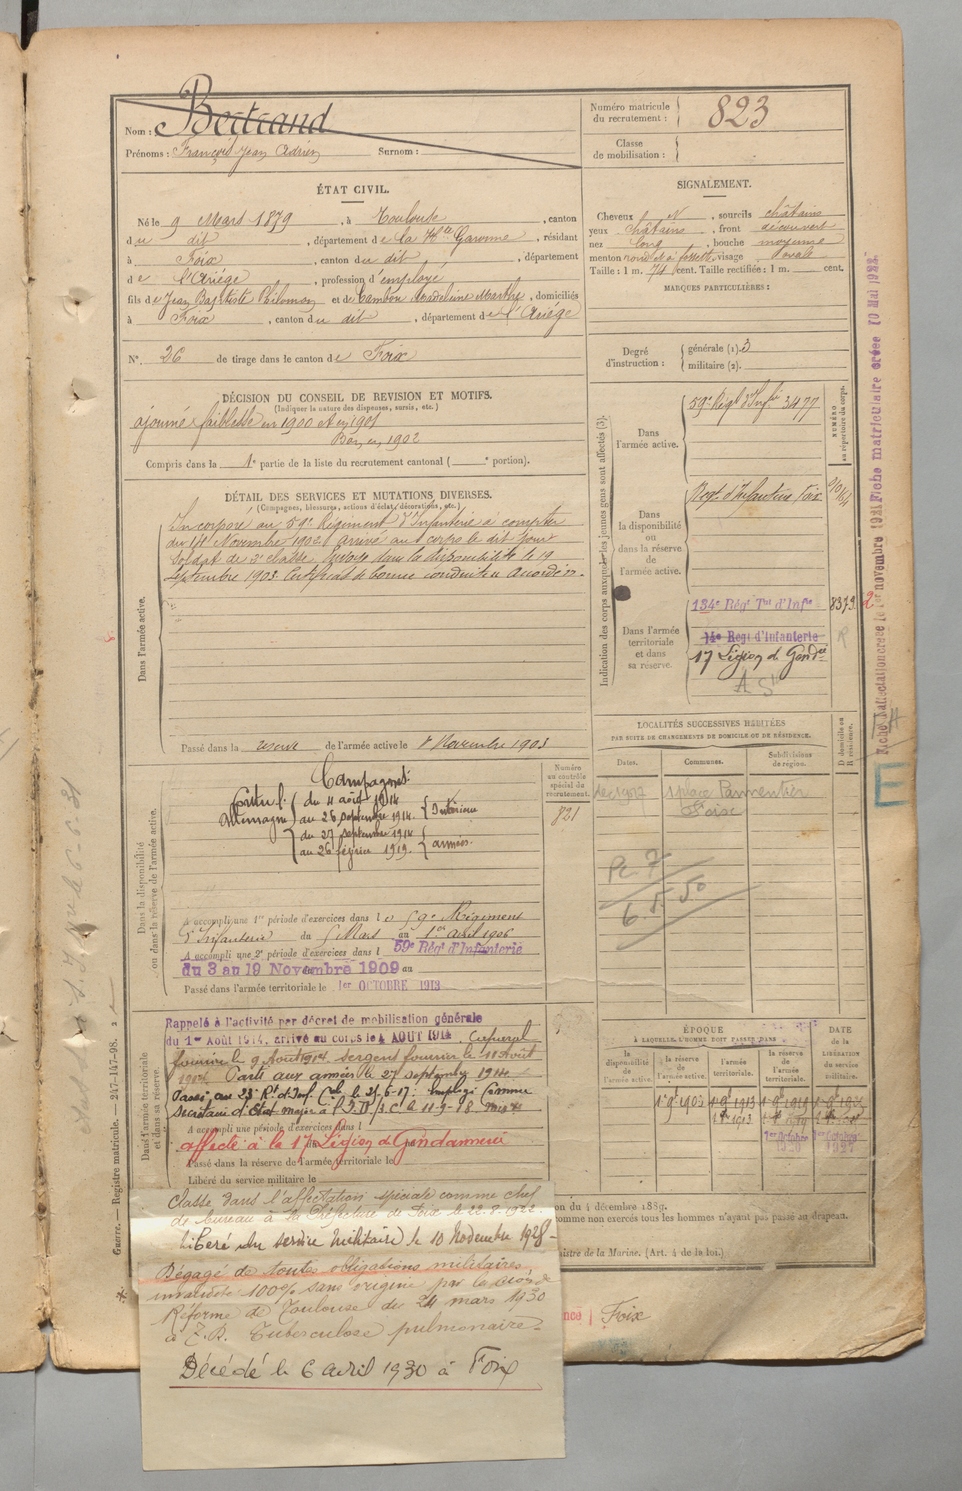 Nom : Bertrand
Prénoms : François Jean Adrien Surnom :
Numéro matricule du recrutement : 823
Classe de mobilisation :
ÉTAT CIVIL.
Né le 9 Mars 1879, à Toulouse, canton
du dit, département de la Hte Garonne, résidant
à Foix, canton du dit, département
de l'Ariége, profession d'employé
fils de Jean Baptiste Philomon et de Cambon Madeleine Marthe, domiciliés
à Foix, canton du dit, département de l'Ariége
N° 26 de tirage dans le canton de Foix
SIGNALEMENT.
Cheveux N, sourcils châtains
yeux châtains, front découvert
nez long, bouche moyenne
menton rond et à fossette, visage oval
Taille : 1 m. 74 cent. Taille rectifiée : 1 m. cent.
MARQUES PARTICULIÈRES :
Degré d'instruction : générale (1). 3
militaire (2).
DÉCISION DU CONSEIL DE REVISION ET MOTIFS.
(Indiquer la nature des dispenses, sursis, etc.)
ajourné faiblesse en 1900 et en 1901
Bon en 1902
Compris dans la 1e partie de la liste du recrutement cantonal ( e portion).
DÉTAIL DES SERVICES ET MUTATIONS DIVERSES.
(Campagnes, blessures, actions d'éclat, décorations, etc.)
Dans l'armée active.
Incorporé au 59e Régiment d'Infanterie à compter
du 1er Novembre 1902. Arrivé au corps le dit jour
Soldat de 2e classe. Envoyé dans la disponibilité le 19
Septembre 1903. Certificat de bonne conduite Accordé
Passé dans la reserve de l'armée active le 1er Novembre 1903
Indication des corps auxquels les jeunes gens sont affectés (3).
NUMÉRO au répertoire du corps.
Dans l'armée active.
59e Régt d'Infie 3477
Dans la disponibilité ou dans la réserve de l'armée active.
Regt. d'Infanterie Foix
Dans l'armée territoriale et dans sa réserve.
134e Rég' Tal d'Infie 8373
14e Regt d'Infanterie
17 Légion de Gendie
A S
LOCALITÉS SUCCESSIVES HABITÉES
PAR SUITE DE CHANGEMENTS DE DOMICILE OU DE RÉSIDENCE.
Dates. Communes. Subdivisions de région. D domicile ou R résidence.
1 place Parmentier
Foix
Pl. 7
6.5.50
Dans la disponibilité ou dans la réserve de l'armée active.
Numéro au contrôle spécial du recrutement.
821
Campagnes:
Contre l'Allemagne
du 4 août 1914
au 26 septembre 1914. Intérieur
du 27 septembre 1914
au 26 février 1919. armées.
A accompli une 1re période d'exercices dans le 59e Régiment
d'Infanterie du 5 Mars au 1er avril 1906
A accompli une 2e période d'exercices dans l 59e Rég' d'Infanterie
du 3 au 19 Novembre 1909 au
Passé dans l'armée territoriale le 1er OCTOBRE 1913
Dans l'armée territoriale et dans sa réserve.
Rappelé à l'activité par décret de mobilisation générale
du 1er Août 1914. arrivé au corps le 4 AOUT 1914. Caporal
fourrier le 9 Août 1914. Sergent fourrier le 11 Août
1914. Parti aux armées le 27 septembre 1914
Passé au 23e Rt d'Inf. Cal le 25-6-17: Employé comme
secrétaire d'Etat major
A accompli une période d'exercices dans l
affecté à la 17e Légion de Gendarmerie
Passé dans la réserve de l'armée territoriale le
Libéré du service militaire le
Classé dans l'affectation spéciale comme chef
de bureau à la Préfecture de Foix le 22.8.1922.
Libéré du service militaire le 10 Novembre 1928
Dégagé de toutes obligations militaires,
invalidité 100% sans origine par la Cion de
Réforme de Toulouse du 24 mars 1930
à T.B. Tuberculose pulmonaire
Décédé le 6 avril 1930 à Foix
ÉPOQUE
À LAQUELLE L'HOMME DOIT PASSER DANS
la disponibilité de l'armée active. la réserve de l'armée active. l'armée territoriale. la réserve de l'armée territoriale.
DATE de la LIBÉRATION du service militaire.
on du 4 décembre 1889.
omme non exercés tous les hommes n'ayant pas passé au drapeau.
istre de la Marine. (Art. 4 de la loi.)
Foix
Guerre. — Registre matricule. — 247-147-98.
E